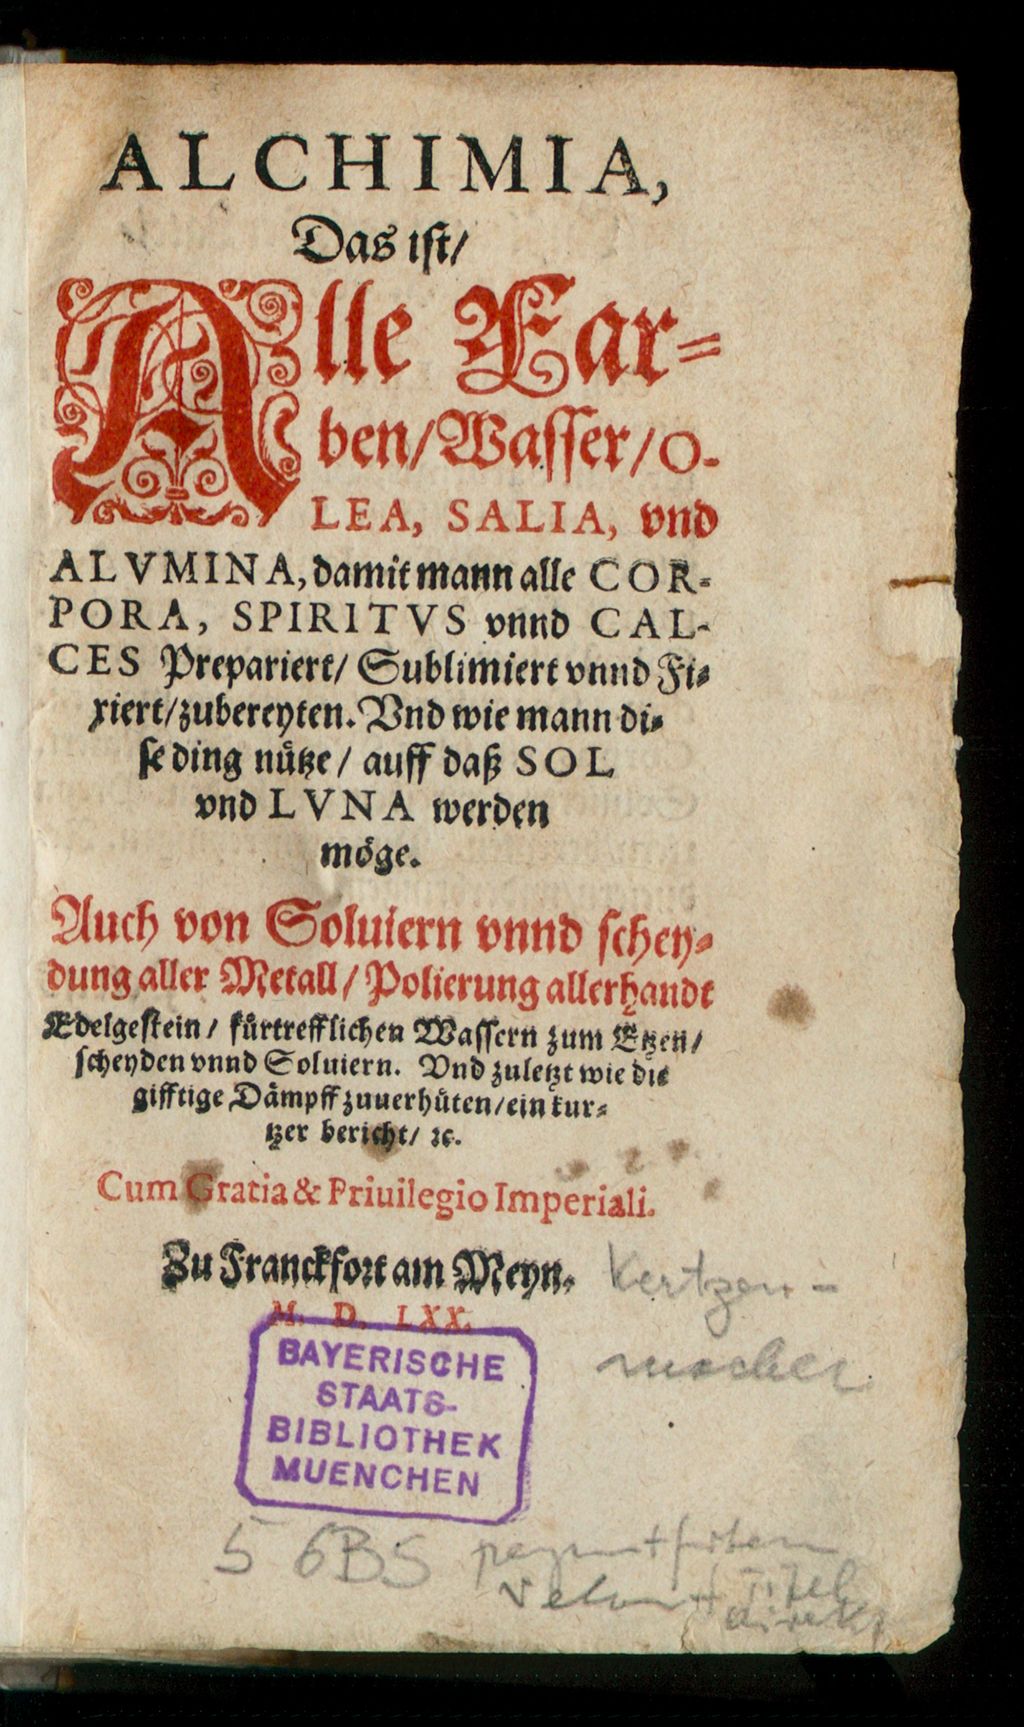 ALCHIMIA,
Das ist/
Alle Far=
ben/Wasser/O-
LEA, SALIA, vnd
ALVMINA, damit mann alle COR-
PORA, SPIRITVS vnnd CAL-
CES Prepariert/ Sublimiert vnnd Fi=
xiert/zubereyten. Vnd wie mann di=
se ding nütze/ auff daß SOL
vnd LVNA werden
möge.
Auch von Soluiern vnnd schey=
dung aller Metall/ Polierung allerhandt
Edelgestein/ fürtrefflichen Wassern zum Etzen/
scheyden vnnd Soluiern. Vnd zuletzt wie die
gifftige Dämpff zuuerhüten/ein kur=
tzer bericht/ ꝛc.
Cum Gratia & Priuilegio Imperiali.
Zu Franckfort am Meyn.
M. D. LXX.
Kertzen-
macher
BAYERISCHE
STAATS-
BIBLIOTHEK
MUENCHEN
5 6BS
Titel
direkt